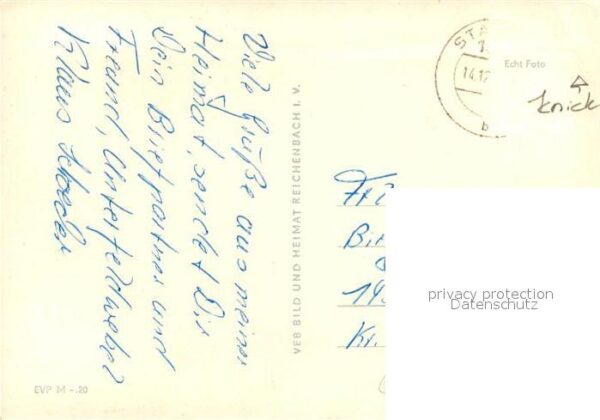 Viele Grüße aus meiner
Heimat, sendet Dir
Dein Briefpartner und
Freund, Unterfeldwebel
Klaus
VEB BILD UND HEIMAT REICHENBACH I. V.
EVP M -.20
STA
14.12
b
Echt Foto
Knick
privacy protection
Datenschutz